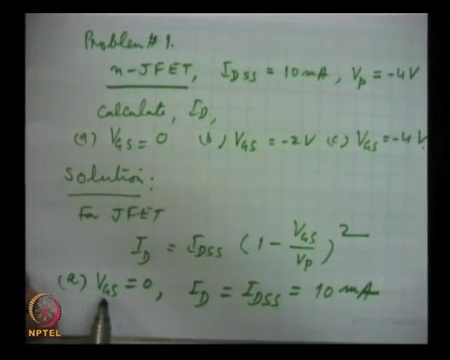 Problem # 1.
n-JFET, I_DSS = 10 mA, V_p = -4V
Calculate, I_D,
(a) V_GS = 0 (b) V_GS = -2V (c) V_GS = -4V
Solution:
For JFET
I_D = I_DSS (1 - V_GS/V_p)^2
(a) V_GS = 0, I_D = I_DSS = 10 mA
NPTEL